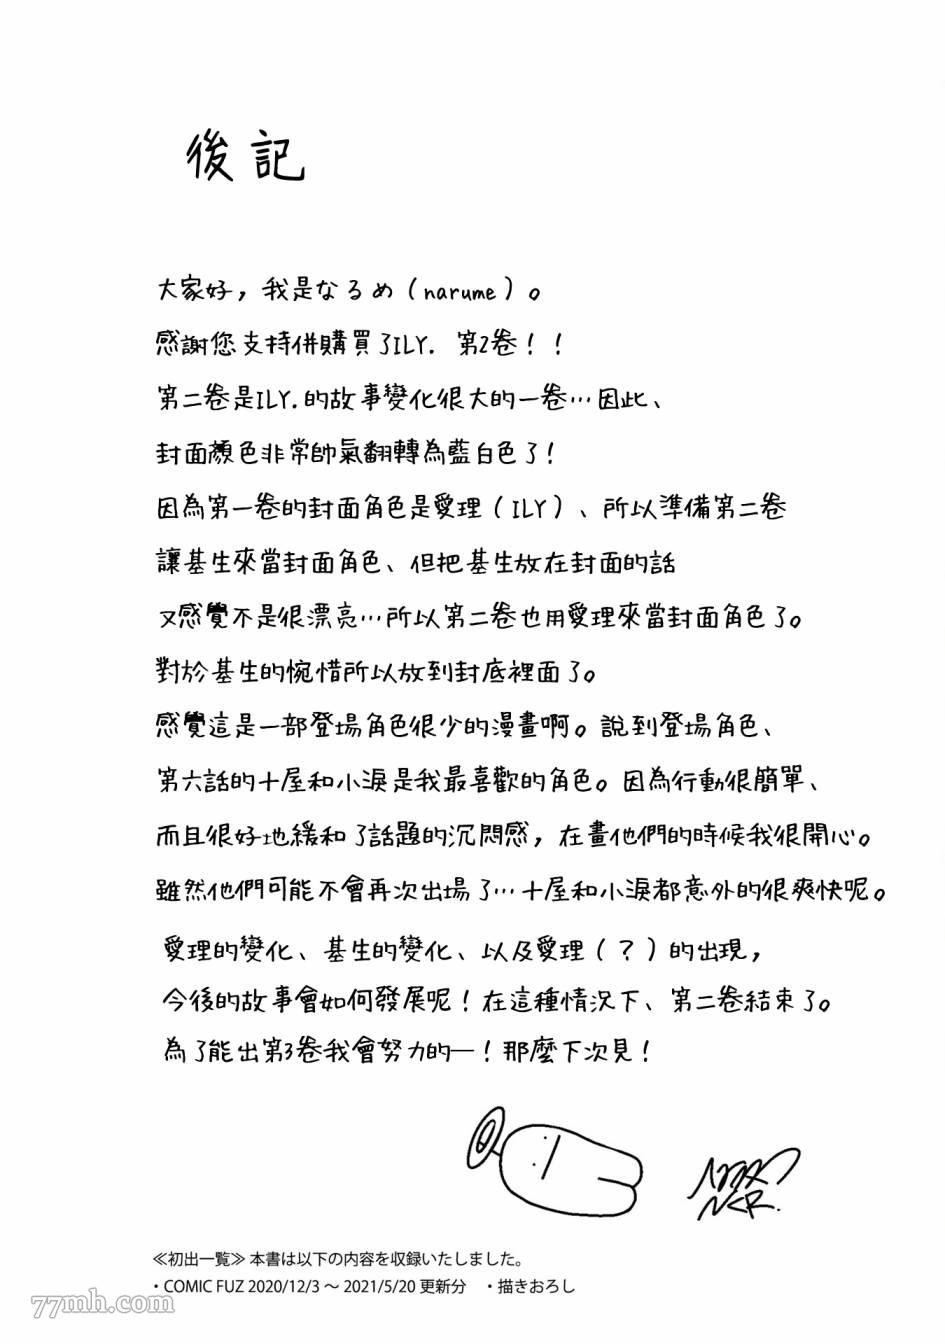 後記
大家好，我是なるめ（narume）。
感謝您支持併購買了ILY. 第2卷！！
第二卷是ILY.的故事變化很大的一卷…因此、
封面顏色非常帥氣翻轉為藍白色了！
因為第一卷的封面角色是愛理（ILY）、所以準備第二卷
讓基生來當封面角色、但把基生放在封面的話
又感覺不是很漂亮…所以第二卷也用愛理來當封面角色了。
對於基生的惋惜所以放到封底裡面了。
感覺這是一部登場角色很少的漫畫啊。說到登場角色、
第六話的十屋和小淚是我最喜歡的角色。因為行動很簡單、
而且很好地緩和了話題的沉悶感，在畫他們的時候我很開心。
雖然他們可能不會再次出場了…十屋和小淚都意外的很爽快呢。
愛理的變化、基生的變化、以及愛理（？）的出現，
今後的故事會如何發展呢！在這種情況下、第二卷結束了。
為了能出第3卷我會努力的—！那麼下次見！
NCR.
≪初出一覧≫本書は以下の内容を収録いたしました。
・COMIC FUZ 2020/12/3 〜 2021/5/20 更新分　・描きおろし
77mh.com